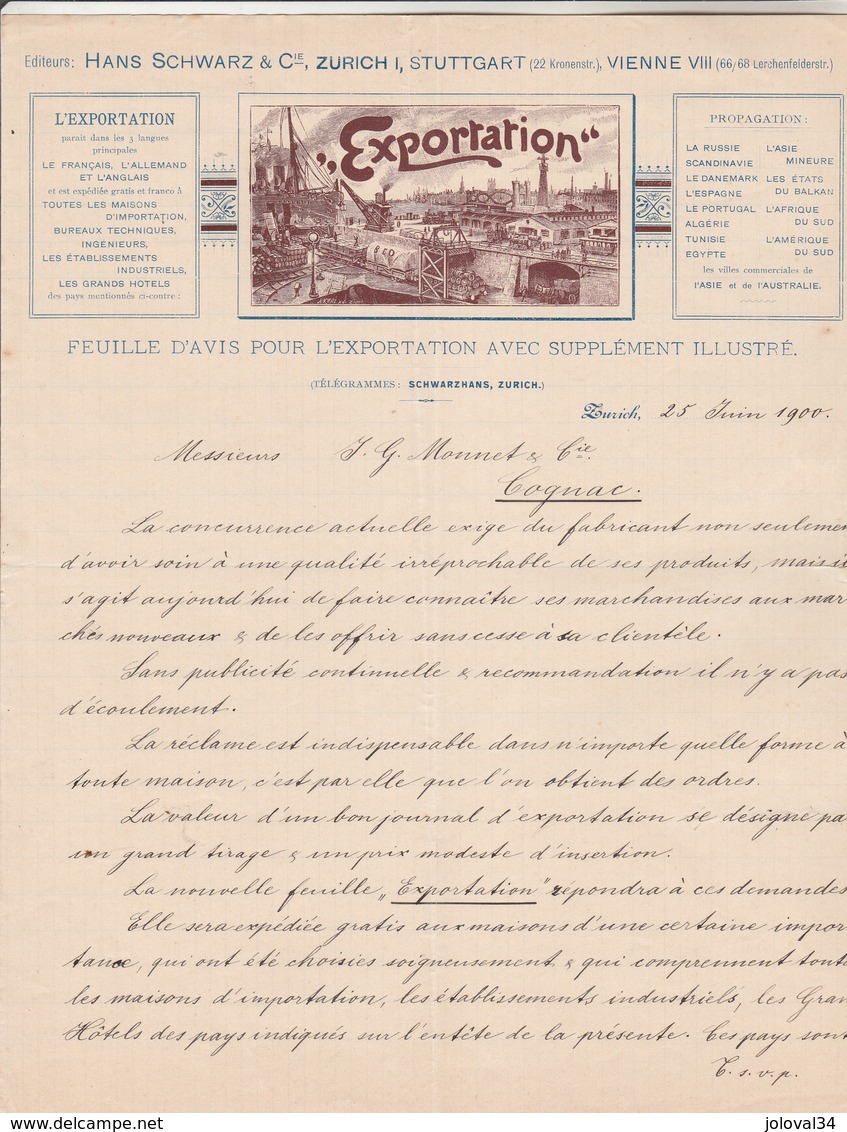 Editeurs: HANS SCHWARZ & CIE, ZURICH I, STUTTGART (22 Kronenstr.), VIENNE VIII (66/68 Lerchenfelderstr.)
L'EXPORTATION
parait dans les 3 langues
principales
LE FRANÇAIS, L'ALLEMAND
ET L'ANGLAIS
et est expédiée gratis et franco à
TOUTES LES MAISONS
D'IMPORTATION,
BUREAUX TECHNIQUES,
INGÉNIEURS,
LES ÉTABLISSEMENTS
INDUSTRIELS,
LES GRANDS HOTELS
des pays mentionnés ci-contre:
„Exportation“
PROPAGATION:
LA RUSSIE
SCANDINAVIE
LE DANEMARK
L'ESPAGNE
LE PORTUGAL
ALGÉRIE
TUNISIE
EGYPTE
L'ASIE
MINEURE
LES ÉTATS
DU BALKAN
L'AFRIQUE
DU SUD
L'AMÉRIQUE
DU SUD
les villes commerciales de
l'ASIE et de l'AUSTRALIE.
FEUILLE D'AVIS POUR L'EXPORTATION AVEC SUPPLÉMENT ILLUSTRÉ.
(TÉLÉGRAMMES: SCHWARZHANS, ZURICH.)
Zurich, 25 Juin 1900.
Messieurs J. G. Monnet & Cie.
Cognac.
La concurrence actuelle exige du fabricant non seulemen
d'avoir soin à une qualité irréprochable de ses produits, mais i
s'agit aujourd'hui de faire connaître ses marchandises aux mar
chés nouveaux & de les offrir sans cesse à sa clientèle.
Sans publicité continuelle & recommandation il n'y a pas
d'écoulement.
La réclame est indispensable dans n'importe quelle forme à
toute maison, c'est par elle que l'on obtient des ordres.
La valeur d'un bon journal d'exportation se désigne pa
un grand tirage & un prix modeste d'insertion.
La nouvelle feuille „Exportation" répondra à ces demandes
Elle sera expédiée gratis aux maisons d'une certaine impor
tance, qui ont été choisies soigneusement & qui comprennent tout
les maisons d'importation, les établissements industriels, les Gran
Hôtels des pays indiqués sur l'entête de la présente. Ces pays sont
T. s. v. p.
www.delcampe.net
joloval34